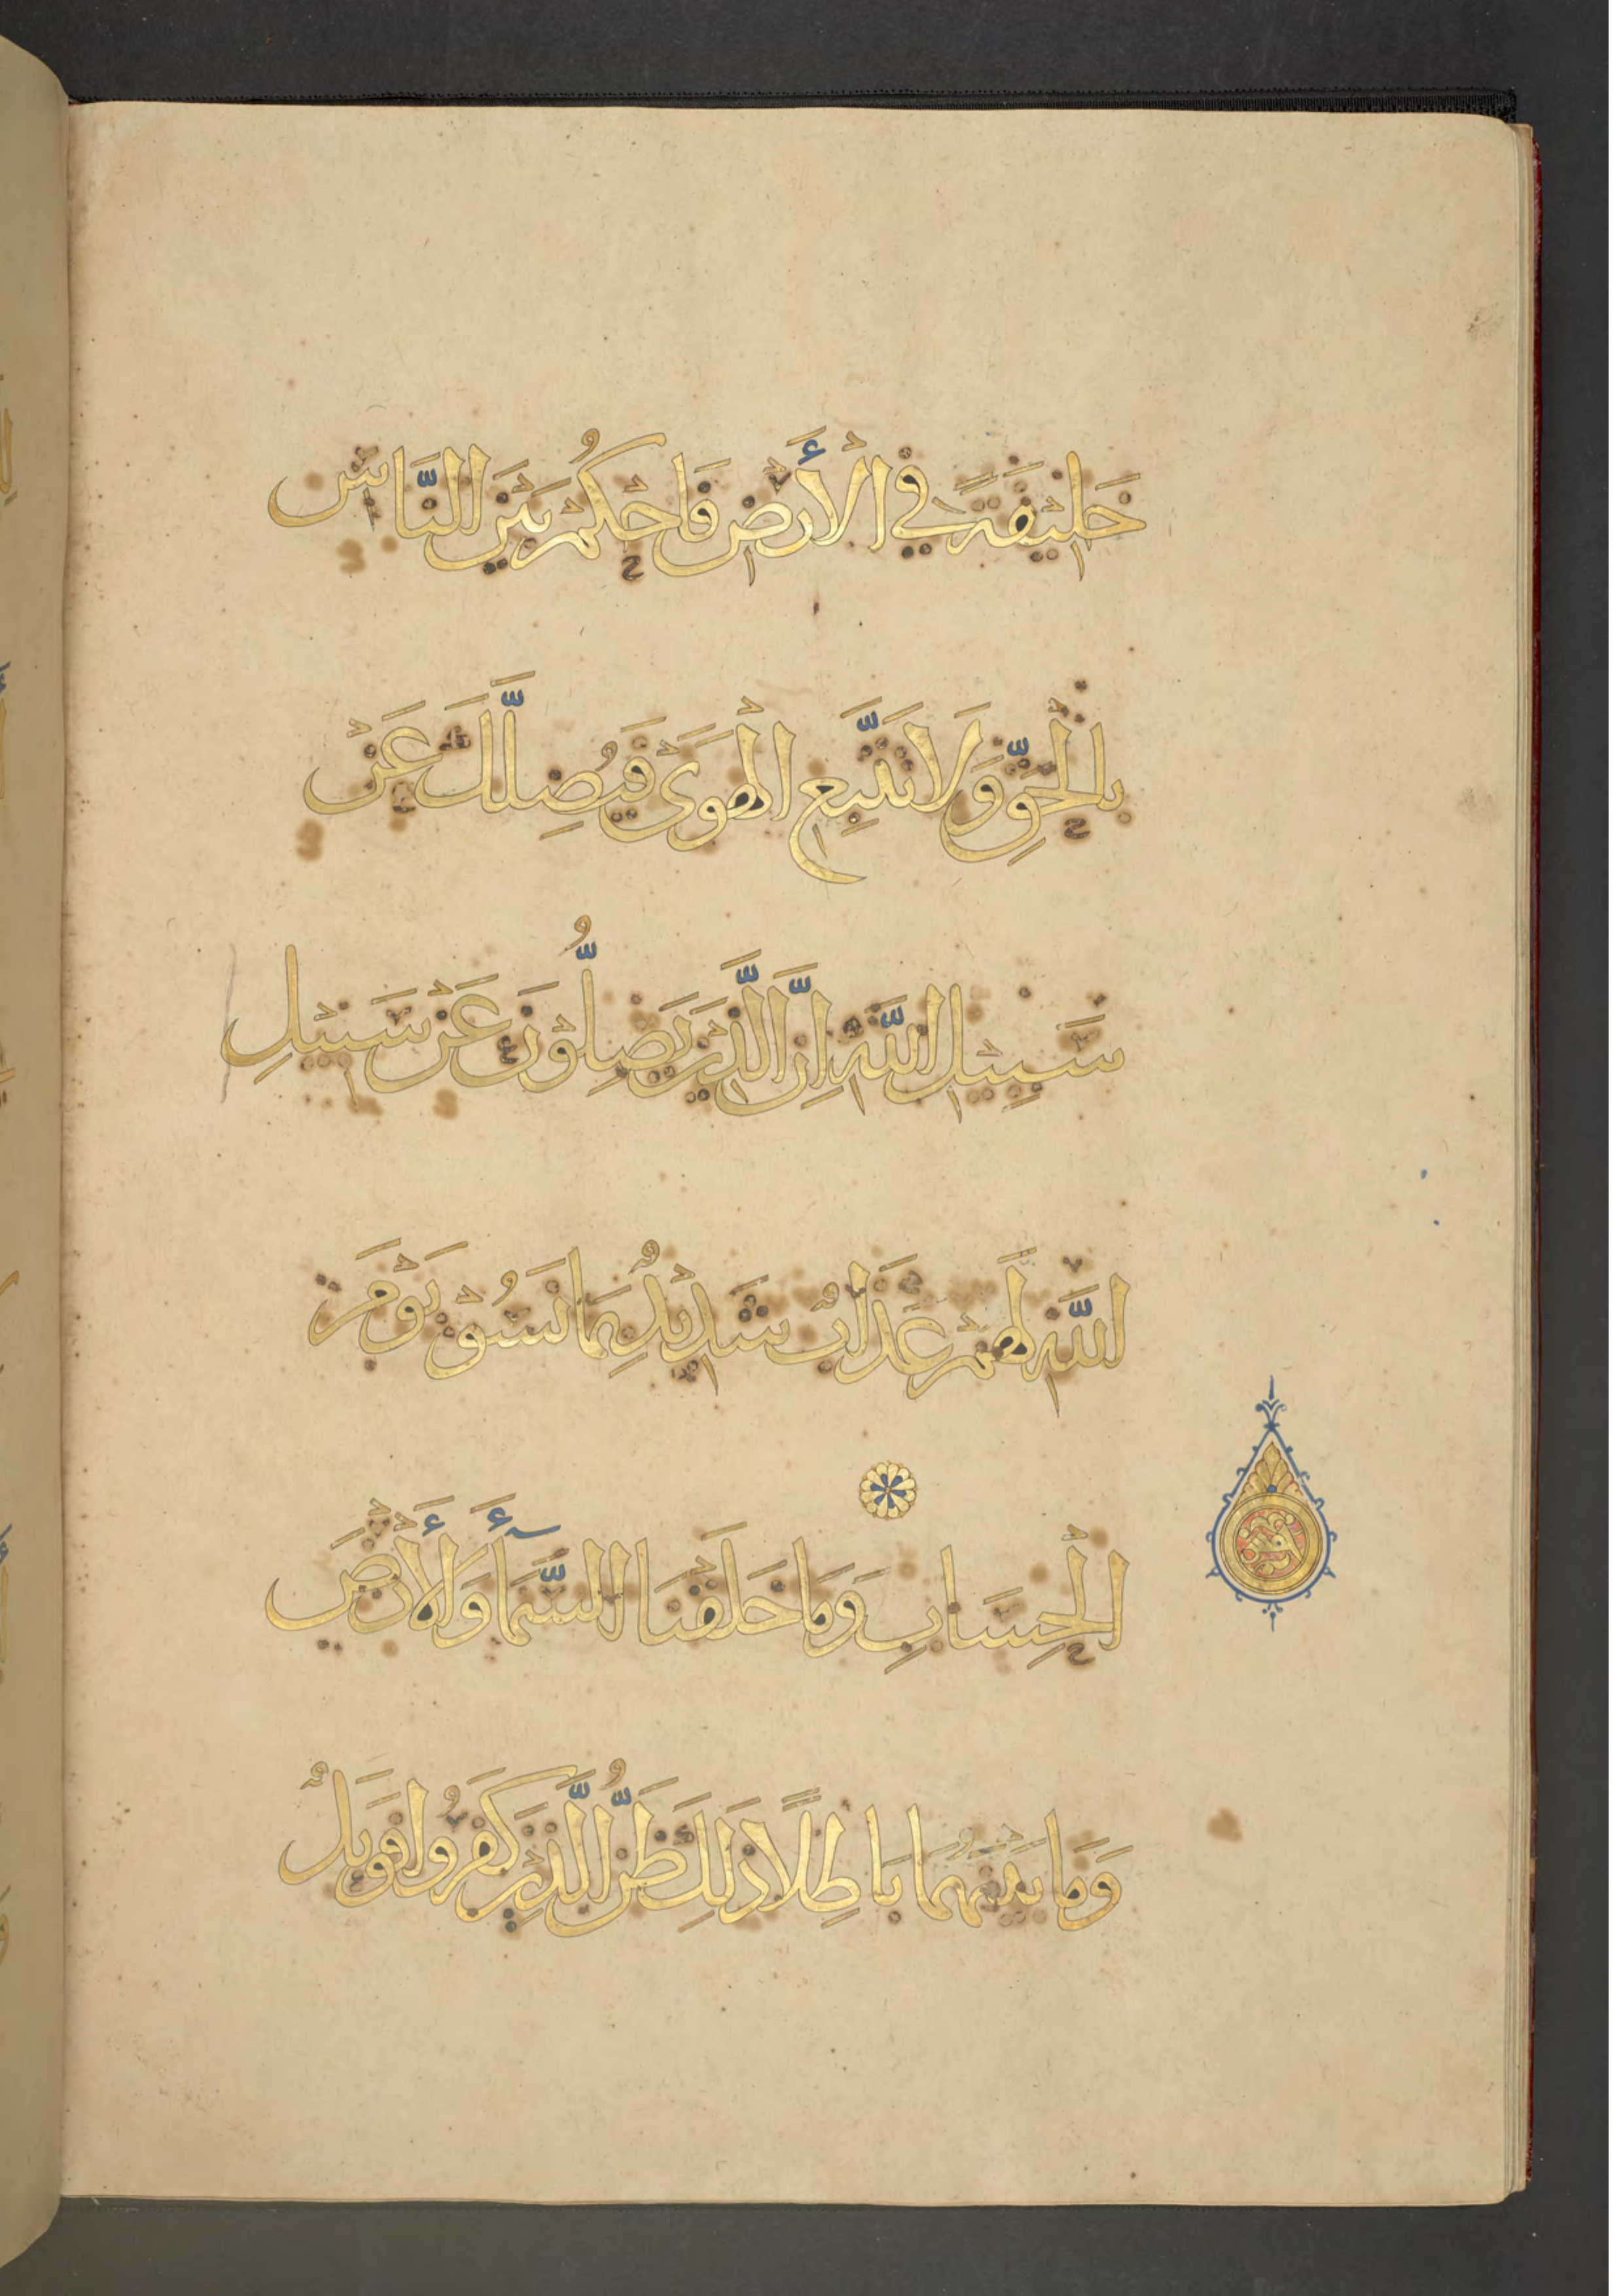 خَلِيْفَةً فِي الْأَرْضِ فَاحْكُمْ بَيْنَ النَّاسِ
بِالْحَقِّ وَلَا تَتَّبِعِ الْهَوَىٰ فَيُضِلَّكَ عَنْ
سَبِيْلِ اللّٰهِ اِنَّ الَّذِيْنَ يَضِلُّوْنَ عَنْ سَبِيْلِ
اللّٰهِ لَهُمْ عَذَابٌ شَدِيْدٌ بِمَا نَسُوْ يَوْمَ
الْحِسَابِ وَمَا خَلَقْنَا السَّمَآءَ وَالْأَرْضَ
وَمَا بَيْنَهُمَا بَاطِلًا ذَلِكَ ظَنُّ الَّذِيْنَ كَفَرُوا فَوَيْلٌ